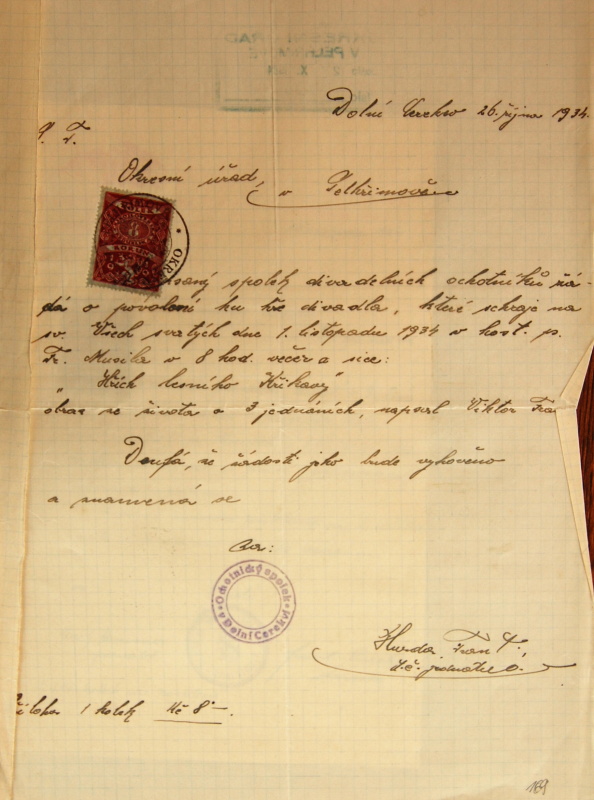 Dolní Cerekev 26. října 1934.
P. T.
Okresní úřad,
v Pelhřimově
KOLEK
8
KORUN
OKRE
psaný spolek divadelních ochotníků žá-
dá o povolení ku hře divadla, které sehraje na
sv. Všech svatých dne 1. listopadu 1934 v host. p.
Fr. Musila v 8 hod. večer a sice:
„Hřích lesního
obraz ze života o 3 jednáních, napsal Viktor
Doufá, že žádosti jeho bude vyhověno
a znamená se
za:
Ochotnický spolek
v Dolní Cerekvi
Frant.,
t. č. jednatel.
říloha 1 kolek Kč 8·—.
169